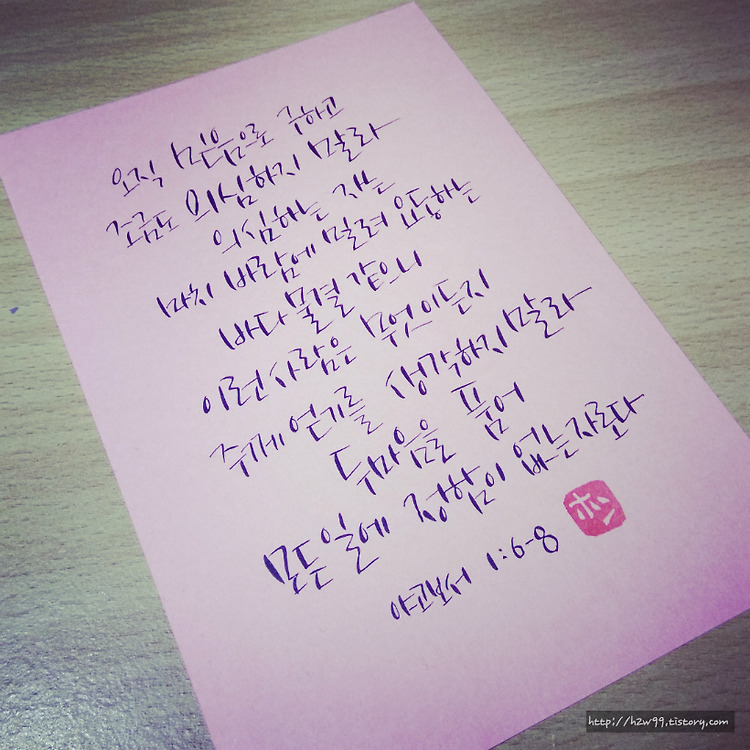 오직 믿음으로 구하고
조금도 의심하지 말라
의심하는 자는
마치 바람에 밀려 요동하는
바다 물결 같으니
이런 사람은 무엇이든지
주께 얻기를 생각하지 말라
두 마음을 품어
모든 일에 정함이 없는 자로다
야고보서 1:6-8
http://h2w99.tistory.com